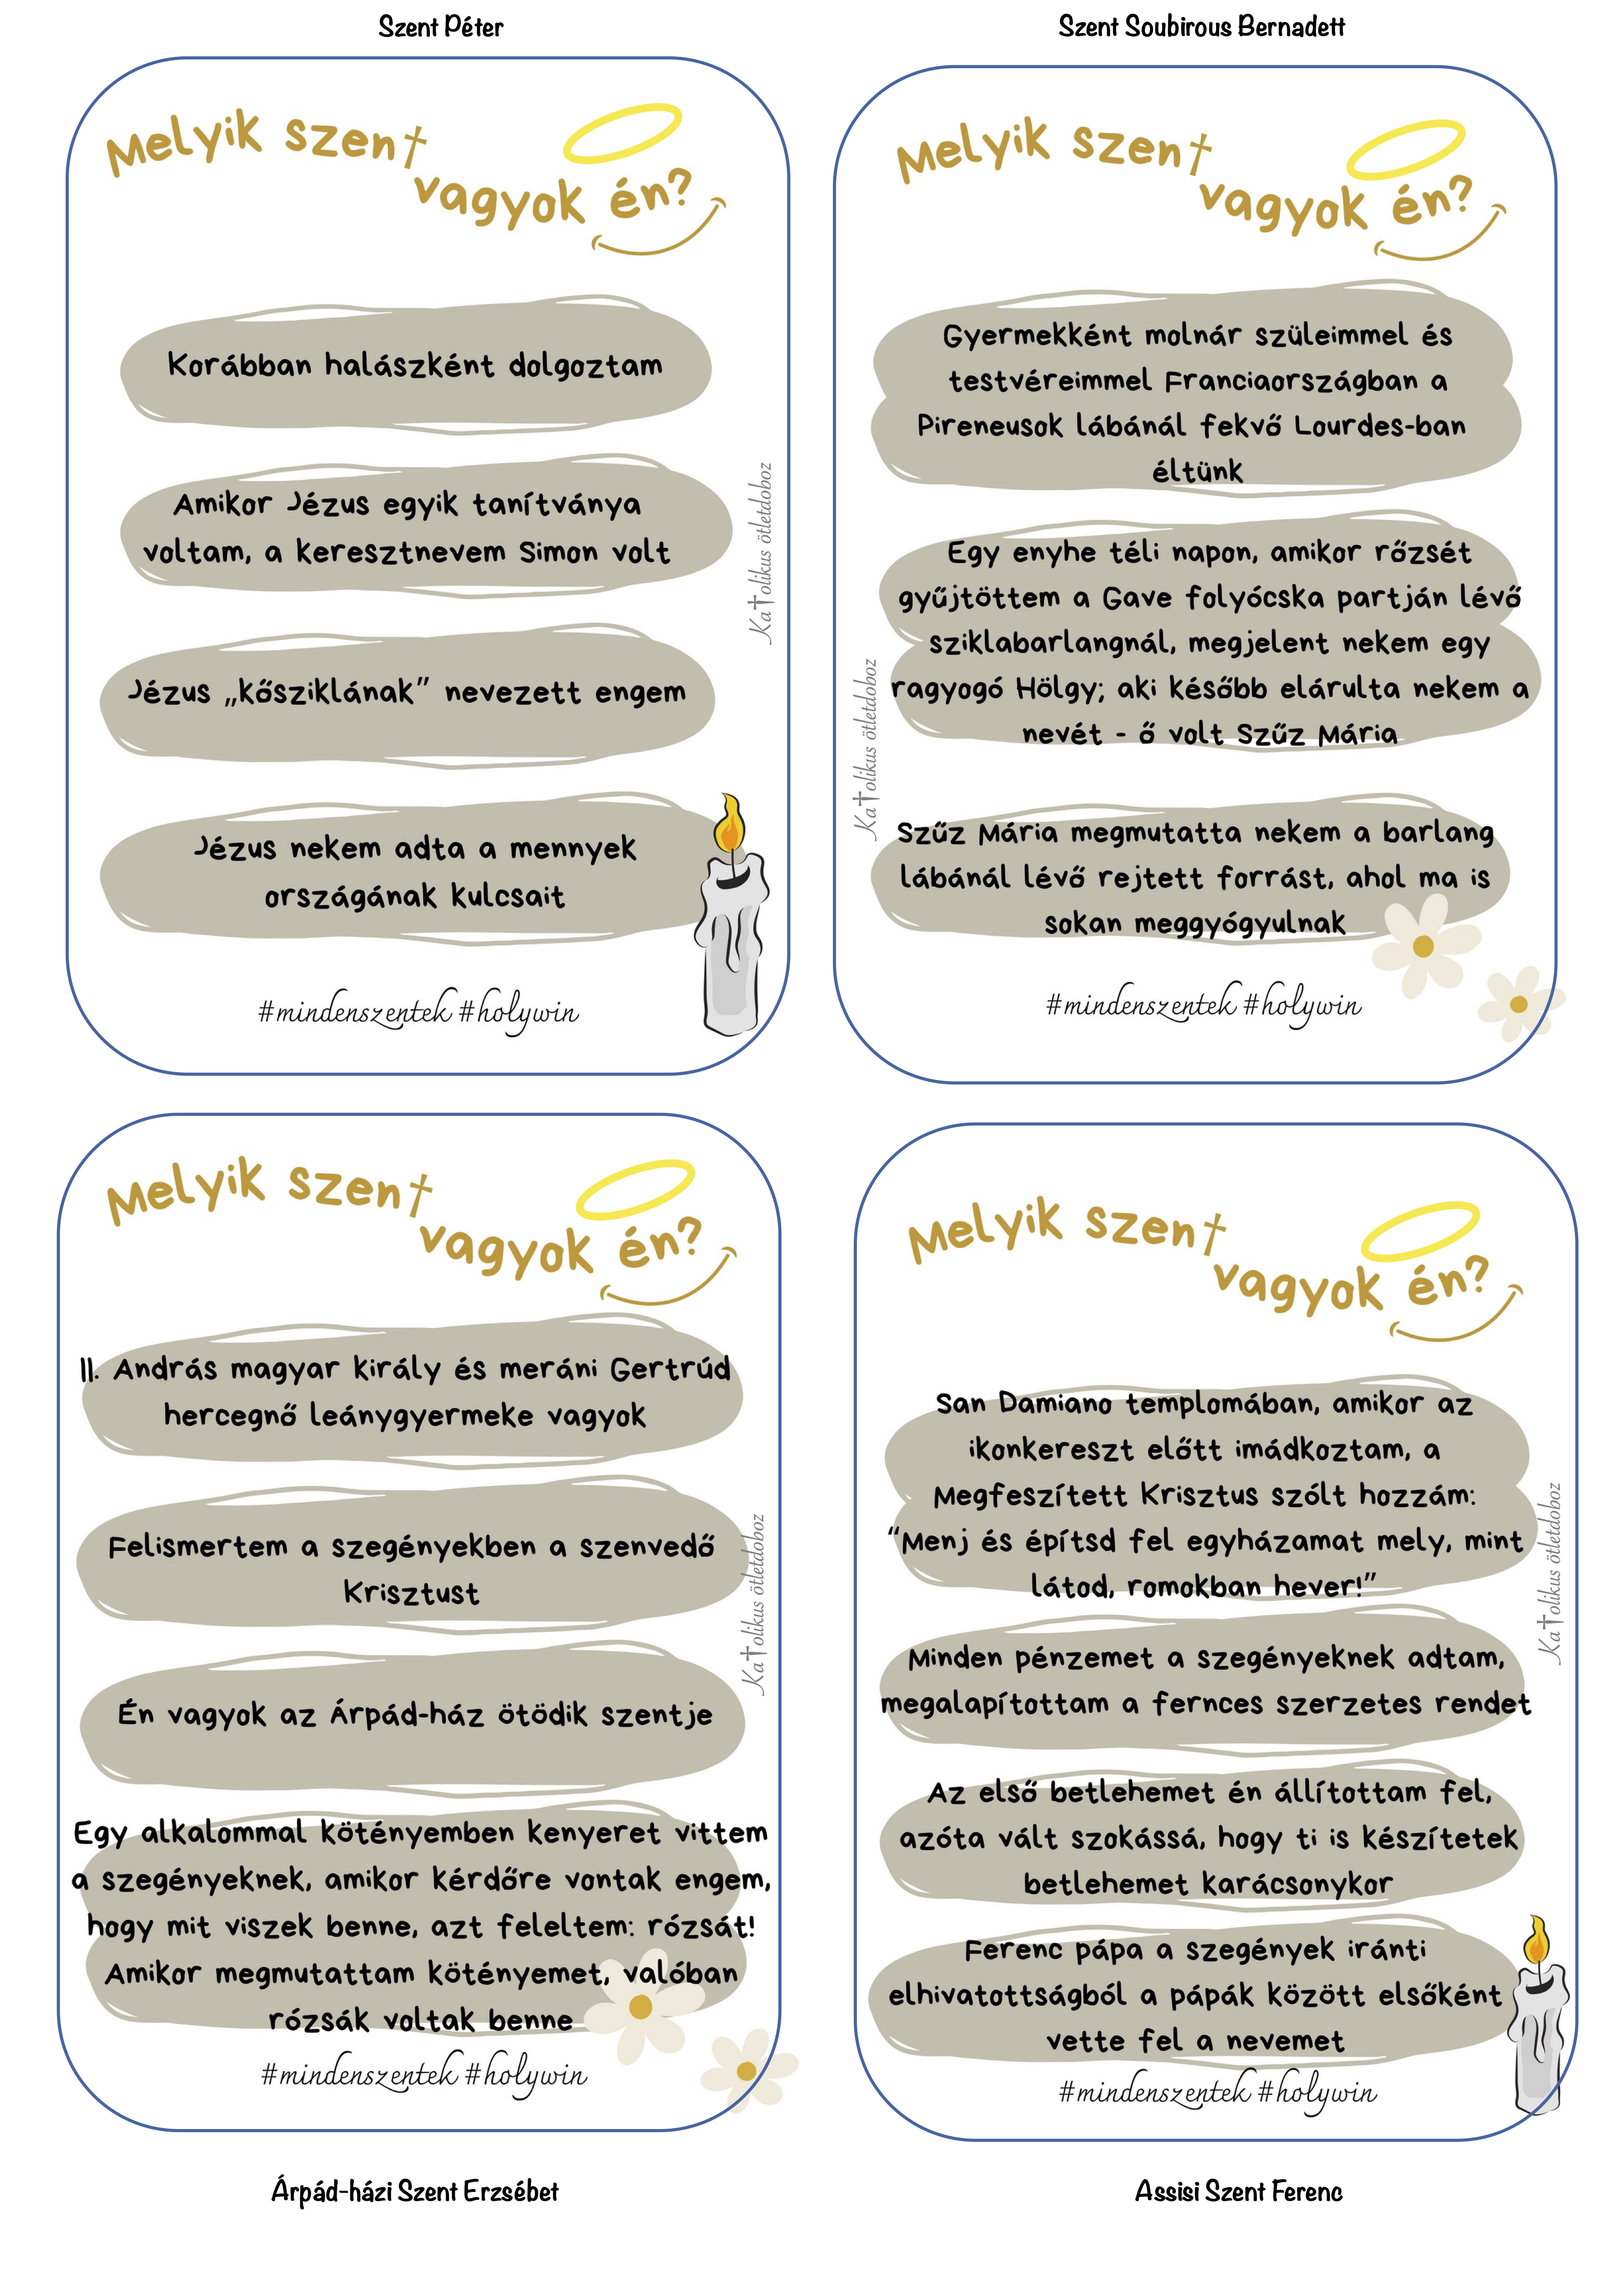 Szent Péter
Melyik szent
vagyok én?
Korábban halászként dolgoztam
Amikor Jézus egyik tanítványa
voltam, a keresztnevem Simon volt
Jézus „kősziklának” nevezett engem
Jézus nekem adta a mennyek
országának kulcsait
Katolikus ötletdoboz
#mindenszentek #holywin
Szent Soubirous Bernadett
Melyik szent
vagyok én?
Gyermekként molnár szüleimmel és
testvéreimmel Franciaországban a
Pireneusok lábánál fekvő Lourdes-ban
éltünk
Egy enyhe téli napon, amikor rőzsét
gyűjtöttem a Gave folyócska partján lévő
sziklabarlangnál, megjelent nekem egy
ragyogó Hölgy; aki később elárulta nekem a
nevét - ő volt Szűz Mária
Szűz Mária megmutatta nekem a barlang
lábánál lévő rejtett forrást, ahol ma is
sokan meggyógyulnak
Katolikus ötletdoboz
#mindenszentek #holywin
Melyik szent
vagyok én?
II. András magyar király és meráni Gertrúd
hercegnő leánygyermeke vagyok
Felismertem a szegényekben a szenvedő
Krisztust
Én vagyok az Árpád-ház ötödik szentje
Egy alkalommal kötényemben kenyeret vittem
a szegényeknek, amikor kérdőre vontak engem,
hogy mit viszek benne, azt feleltem: rózsát!
Amikor megmutattam kötényemet, valóban
rózsák voltak benne
Katolikus ötletdoboz
#mindenszentek #holywin
Árpád-házi Szent Erzsébet
Melyik szent
vagyok én?
San Damiano templomában, amikor az
ikonkereszt előtt imádkoztam, a
Megfeszített Krisztus szólt hozzám:
“Menj és építsd fel egyházamat mely, mint
látod, romokban hever!”
Minden pénzemet a szegényeknek adtam,
megalapítottam a fernces szerzetes rendet
Az első betlehemet én állítottam fel,
azóta vált szokássá, hogy ti is készítetek
betlehemet karácsonykor
Ferenc pápa a szegények iránti
elhivatottságból a pápák között elsőként
vette fel a nevemet
Katolikus ötletdoboz
#mindenszentek #holywin
Assisi Szent Ferenc